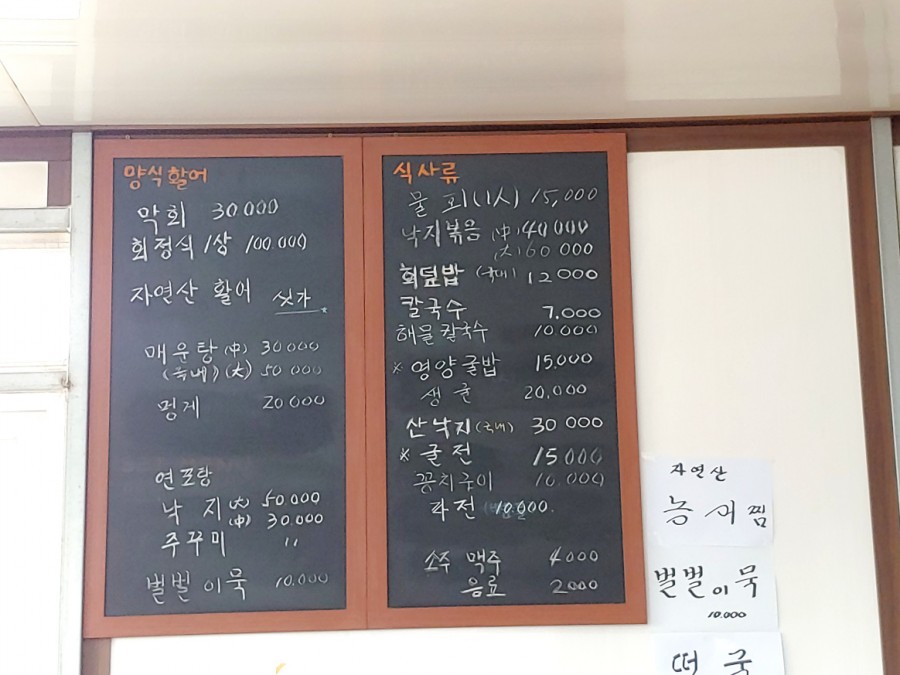 양식활어
막회 30.000
회정식 1상 100.000
자연산 활어 싯가
매운탕 (中) 30000
(국내) (大) 50000
멍게 20000
연포탕
낙지 (大) 50.000
(中) 30.000
쭈꾸미 〃
벌벌이묵 10.000
식사류
물회(1人) 15,000
낙지볶음 (中) 40000
(大) 60000
회덮밥 (국내) 12000
칼국수 7.000
해물칼국수 10.000
※ 영양굴밥 15.000
생굴 20,000
산낙지 (국내) 30000
※ 굴전 15000
꽁치구이 10.000
파전 10.000
소주 맥주 4000
음료 2000
자연산
농어찜
벌벌이묵
10.000
떡국